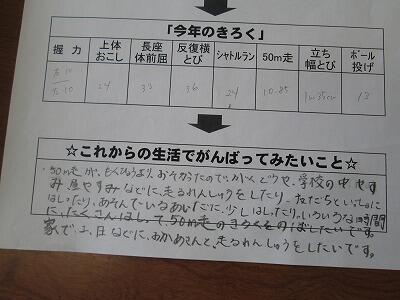 「今年のきろく」
握力 上体おこし 長座体前屈 反復横とび シャトルラン 50m走 立ち幅とび ボール投げ
右10 左10 24 33 36 24 10.85 1m35cm 13
☆これからの生活でがんばってみたいこと☆
・50m走が、もくひょうより、おそかったので、かていや、学校の中やす
み昼やすみなどに、走るれんしゅうをしたり、友だちといっしょに
はしったり、あそんでいるあいだに、少しはしったり、いろいろな時間
に、たくさんはしって、50m走のきろくをのばしたいです。
家で、土、日などに、おかあさんと、走るれんしゅうをしたいです。